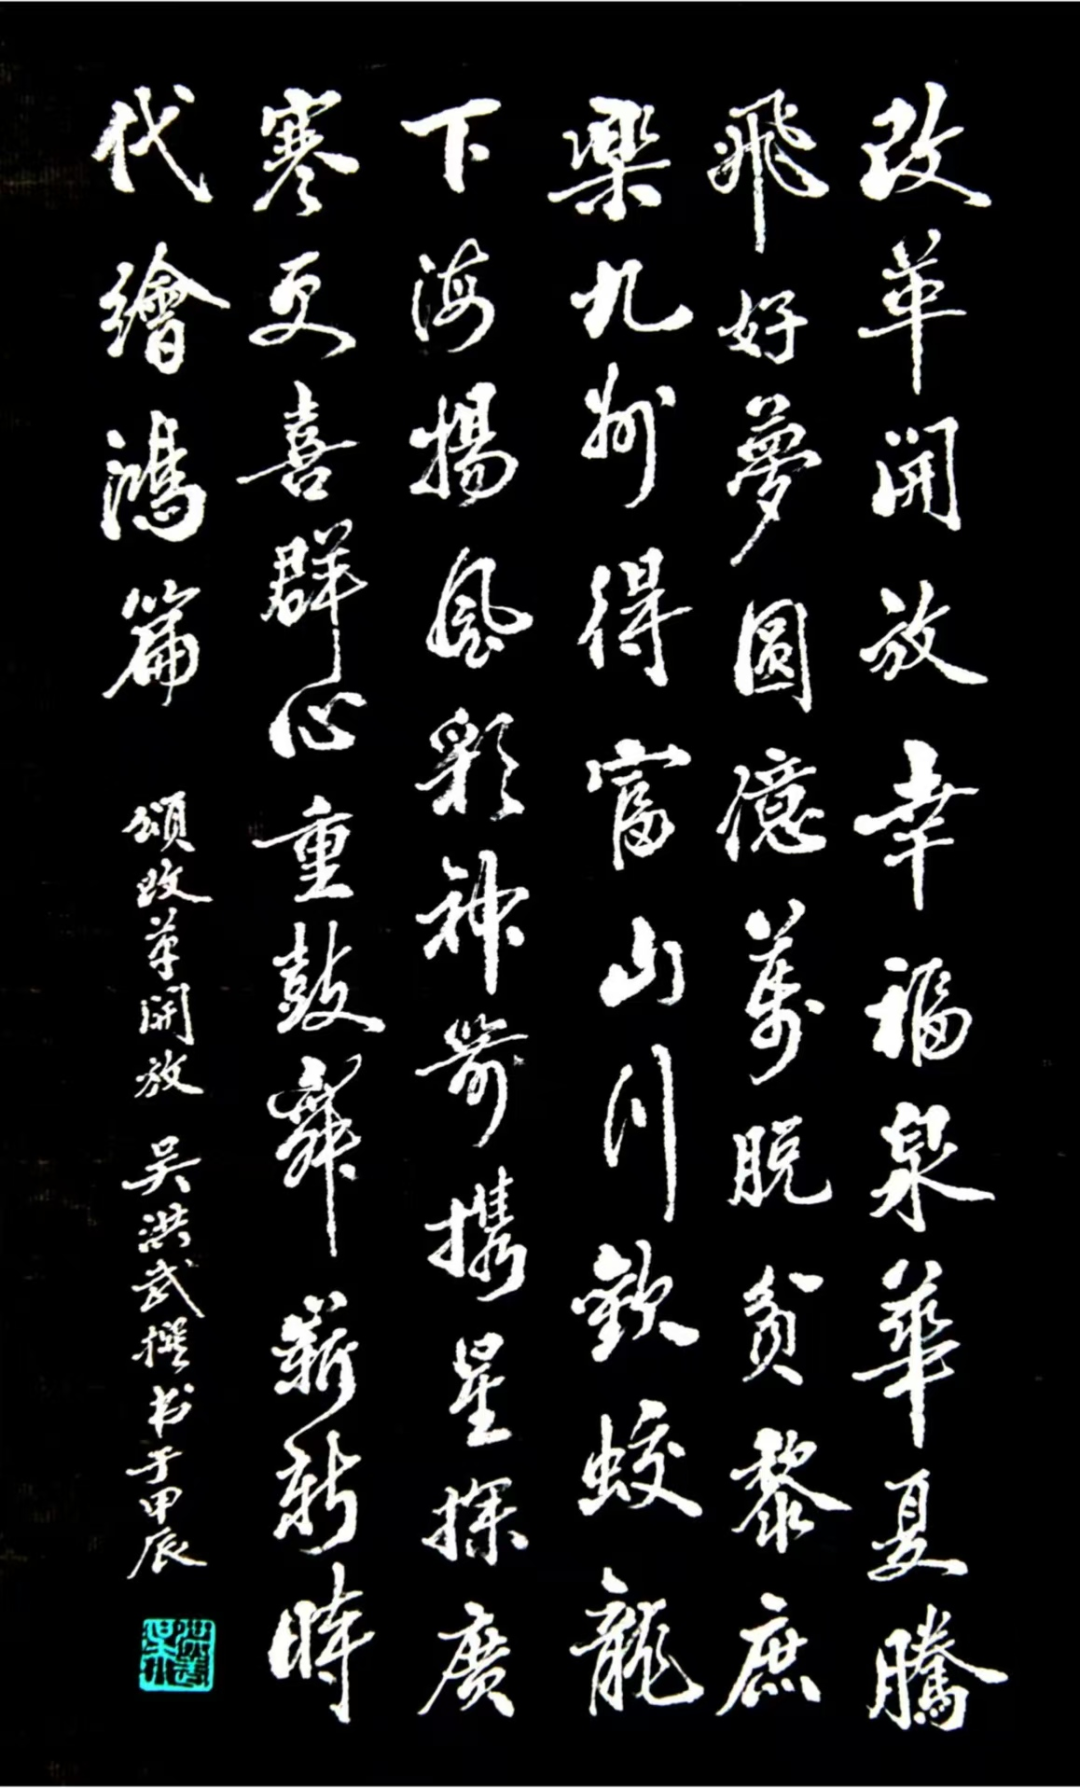 改革開放幸福泉華夏騰
飛好夢圓億萬脫貧黎庶
樂九州得富山川飲蛟龍
下海揚風彩神箭攜星探廣
寒更喜群心重鼓舞嶄新時
代繪鴻篇
頌改革開放 吴洪武撰书于甲辰